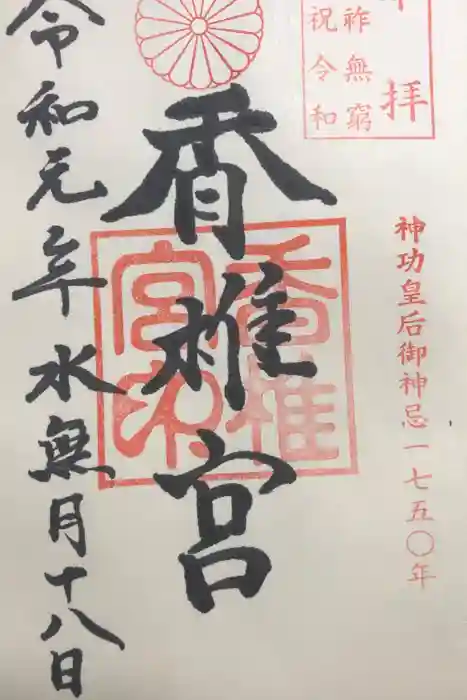 拝
祚無窮
祝令和
神功皇后御神忌一七五〇年
香椎宮
香椎
宮印
令和元年水無月十八日